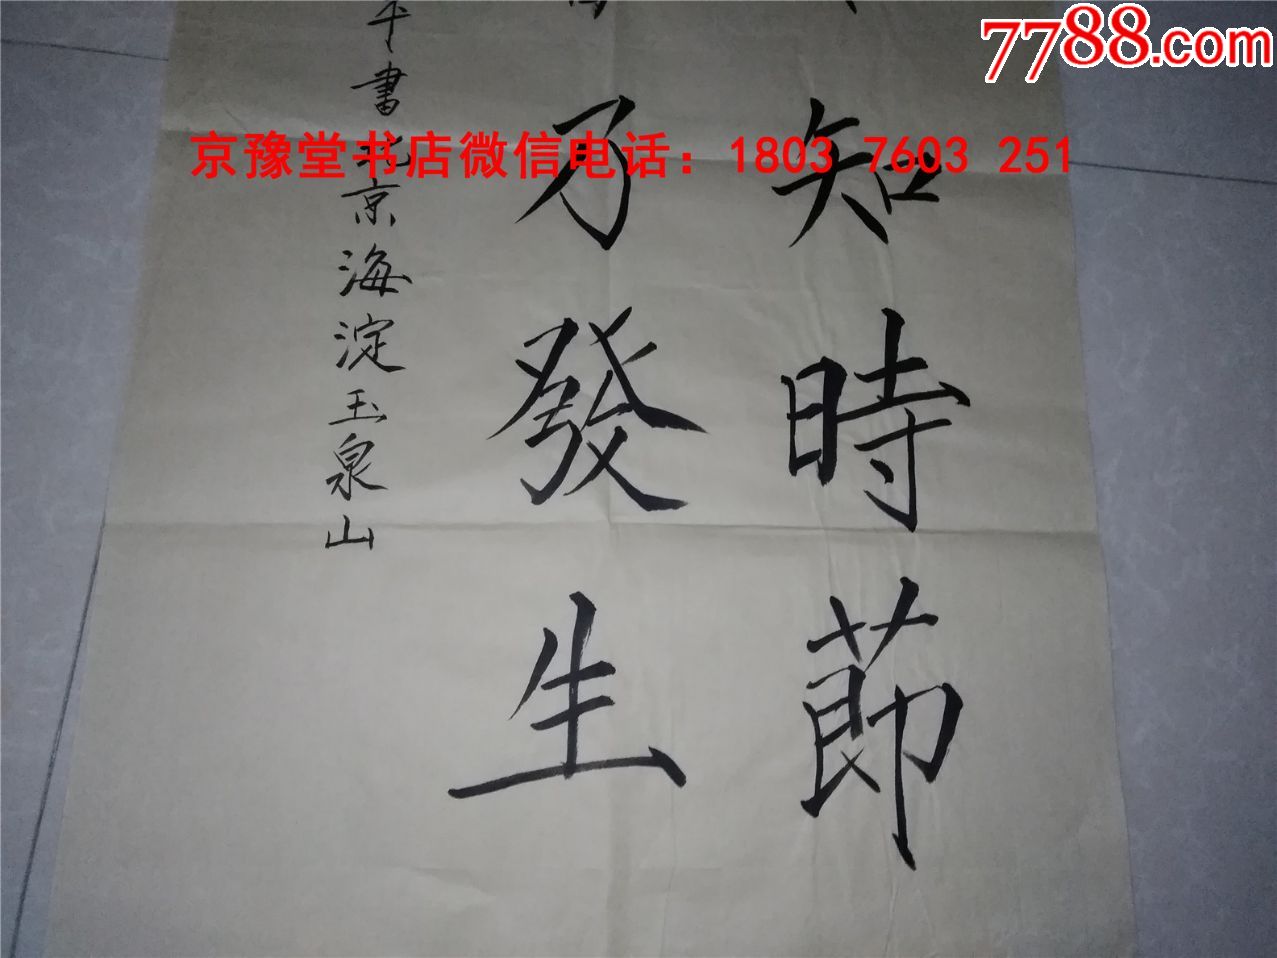 7788.com
京豫堂书店微信电话：1803 7603 251
知時節
乃發生
書北京海淀玉泉山